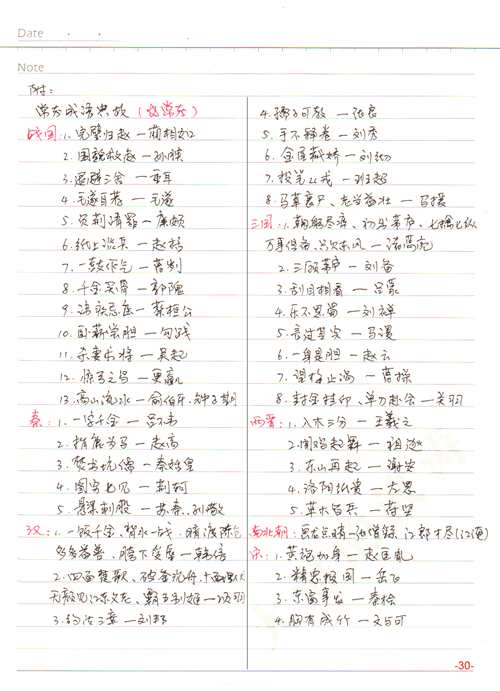 Date
Note
附:
常考成语典故 (必常考)
战国: 1. 完璧归赵 — 蔺相如
2. 围魏救赵 — 孙膑
3. 退避三舍 — 重耳
4. 毛遂自荐 — 毛遂
5. 负荆请罪 — 廉颇
6. 纸上谈兵 — 赵括
7. 一鼓作气 — 曹刿
8. 千金买骨 — 郭隗
9. 讳疾忌医 — 蔡桓公
10. 卧薪尝胆 — 勾践
11. 杀妻求将 — 吴起
12. 惊弓之鸟 — 更羸
13. 高山流水 — 俞伯牙、钟子期
秦: 1. 一字千金 — 吕不韦
2. 指鹿为马 — 赵高
3. 焚书坑儒 — 秦始皇
4. 图穷匕见 — 荆轲
5. 悬梁刺股 — 苏秦、孙敬
汉: 1. 一饭千金、背水一战、暗渡陈仓
多多益善、胯下之辱 — 韩信
2. 四面楚歌、破釜沉舟、十面埋伏
无颜见江东父老、霸王别姬 — 项羽
3. 约法三章 — 刘邦
4. 孺子可教 — 张良
5. 手不释卷 — 刘秀
6. 金屋藏娇 — 刘彻
7. 投笔从戎 — 班超
8. 马革裹尸、老当益壮 — 马援
三国: 1. 鞠躬尽瘁、初出茅庐、七擒七纵
万事俱备,只欠东风 — 诸葛亮
2. 三顾茅庐 — 刘备
3. 刮目相看 — 吕蒙
4. 乐不思蜀 — 刘禅
5. 言过其实 — 马谡
6. 一身是胆 — 赵云
7. 望梅止渴 — 曹操
8. 封金挂印、单刀赴会 — 关羽
西晋: 1. 入木三分 — 王羲之
2. 闻鸡起舞 — 祖逖
3. 东山再起 — 谢安
4. 洛阳纸贵 — 左思
5. 草木皆兵 — 苻坚
南北朝: 画龙点睛 — 张僧繇、江郎才尽(江淹)
宋: 1. 黄袍加身 — 赵匡胤
2. 精忠报国 — 岳飞
3. 东窗事发 — 秦桧
4. 胸有成竹 — 文与可
-30-